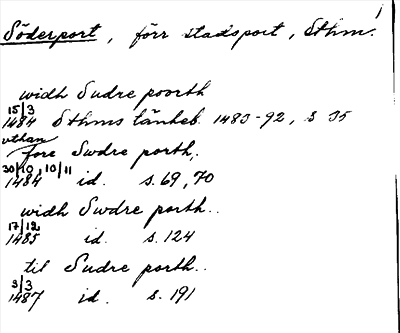 1
Söderport, förr stadsport, Sthm.
widh Sudre poorth
15/3
1484 Sthms tänkeb. 1483-92, s 35
uthan
före Swdre porth,
30/10, 10/11
1484 id. s. 69, 70
widh Swdre porth..
17/12
1485 id. s. 124
til Sudre porth..
3/3
1487 id. s. 191